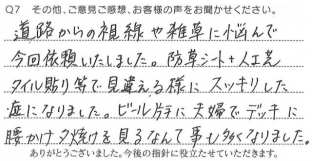 Q7 その他、ご意見ご感想、お客様の声をお聞かせください。
道路からの視線や雑草に悩んで
今回依頼いたしました。防草シート+人工芝
タイル貼り等で見違える様にスッキリした
庭になりました。ビール片手に夫婦でデッキに
腰かけ夕焼けを見るなんて事も多くなりました。
ありがとうございました。今後の指針に役立たせていただきます。